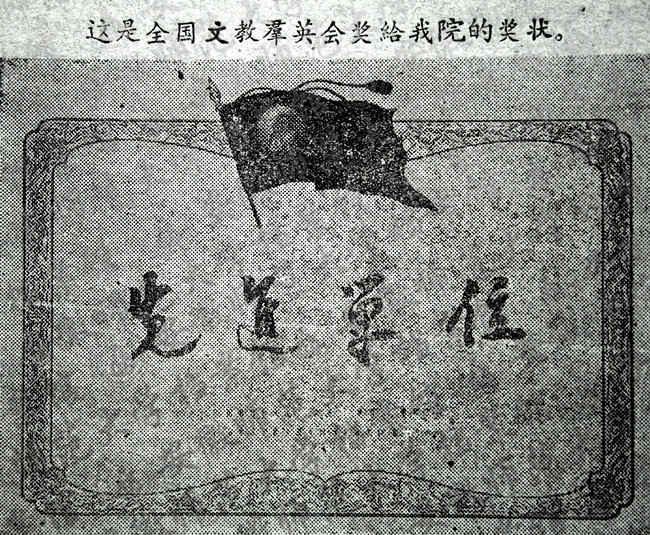 这是全国文教羣英会奖給我院的奖状。
先進單位